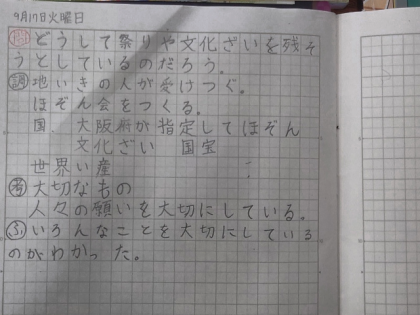 9月17日火曜日
問どうして祭りや文化ざいを残そ
うとしているのだろう。
調地いきの人が受けつぐ。
ほぞん会をつくる。
国 大阪府が指定してほぞん
文化ざい 国宝
世界い産
考大切なもの
人々の願いを大切にしている。
ふいろんなことを大切にしている
のがわかった。